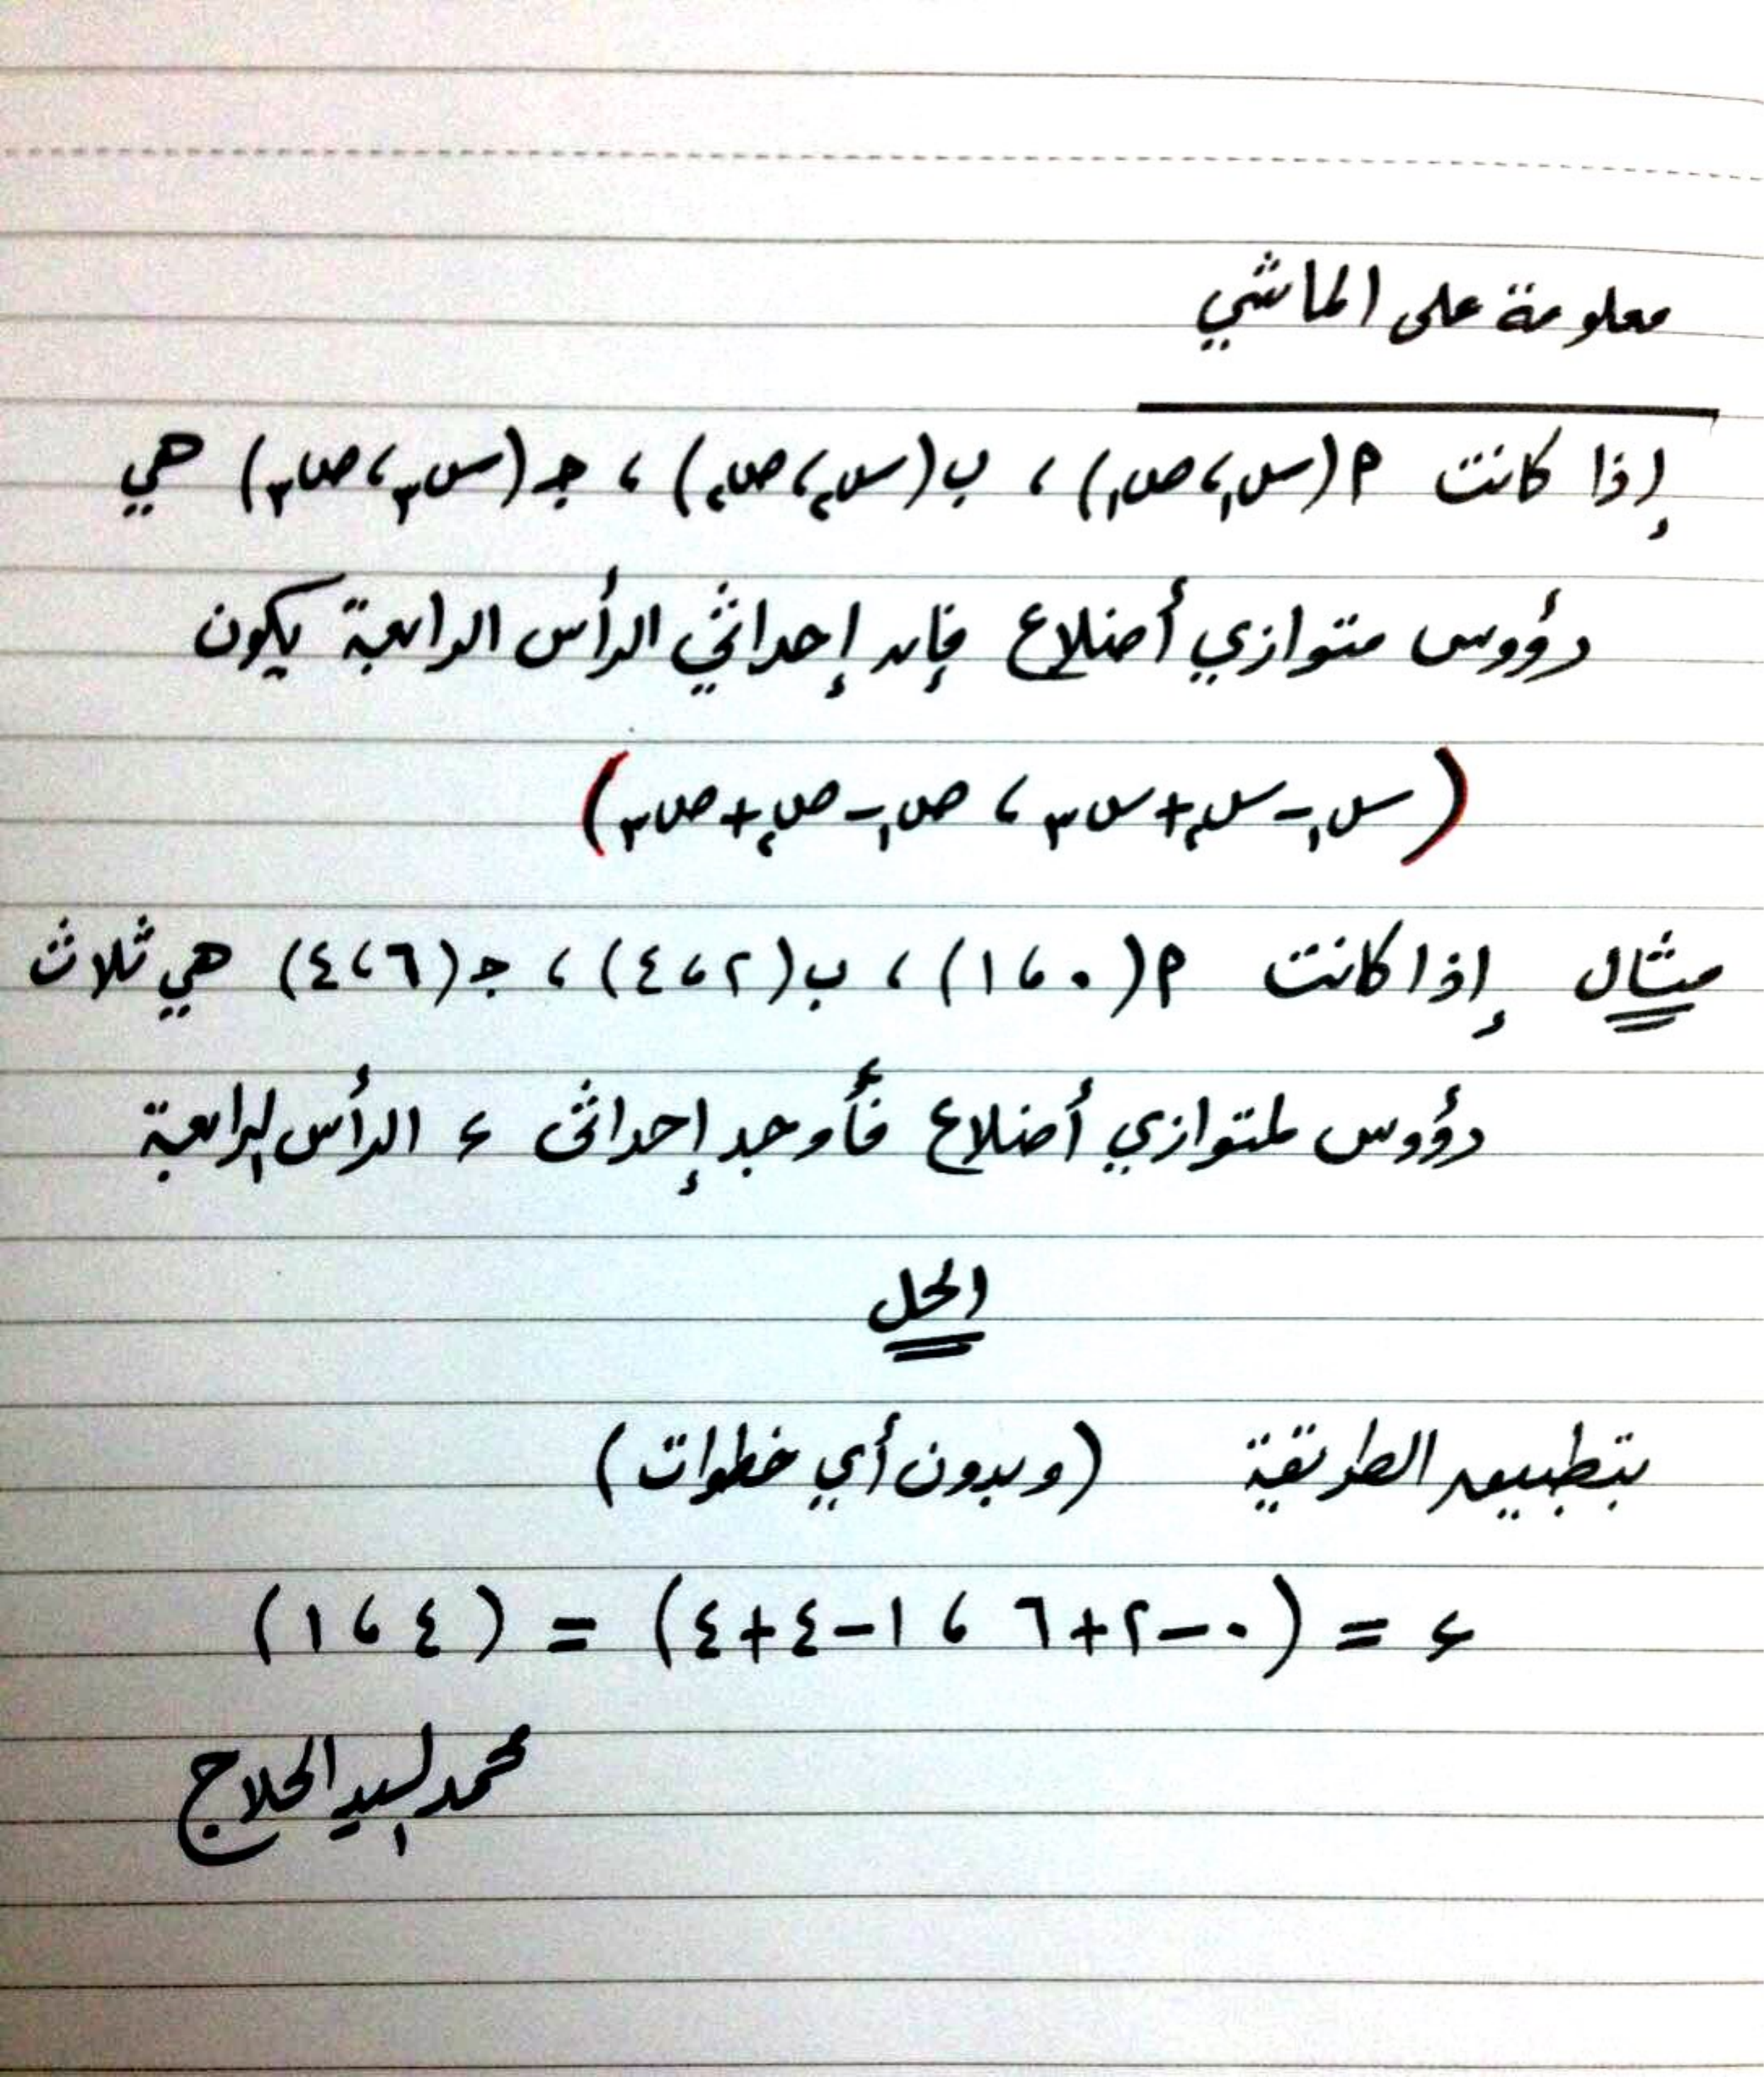 معلومة على الماشي
إذا كانت م(س₁،ص₁) ، ب(س₂،ص₂) ، جـ(س₃،ص₃) هي
رؤوس متوازي أضلاع فإن إحداثي الرأس الرابعة يكون
(س₁-س₂+س₃ ، ص₁-ص₂+ص₃)
مثال إذا كانت م(٠ ، ١) ، ب(٢ ، ٤) ، جـ(٦ ، ٤) هي ثلاث
رؤوس لمتوازي أضلاع فأوجد إحداثى ء الرأس الرابعة
الحل
بتطبيق الطريقة (وبدون أي خطوات)
ء = (٠-٢+٦ ، ١-٤+٤) = (٤ ، ١)
محمد السيد الحلاج